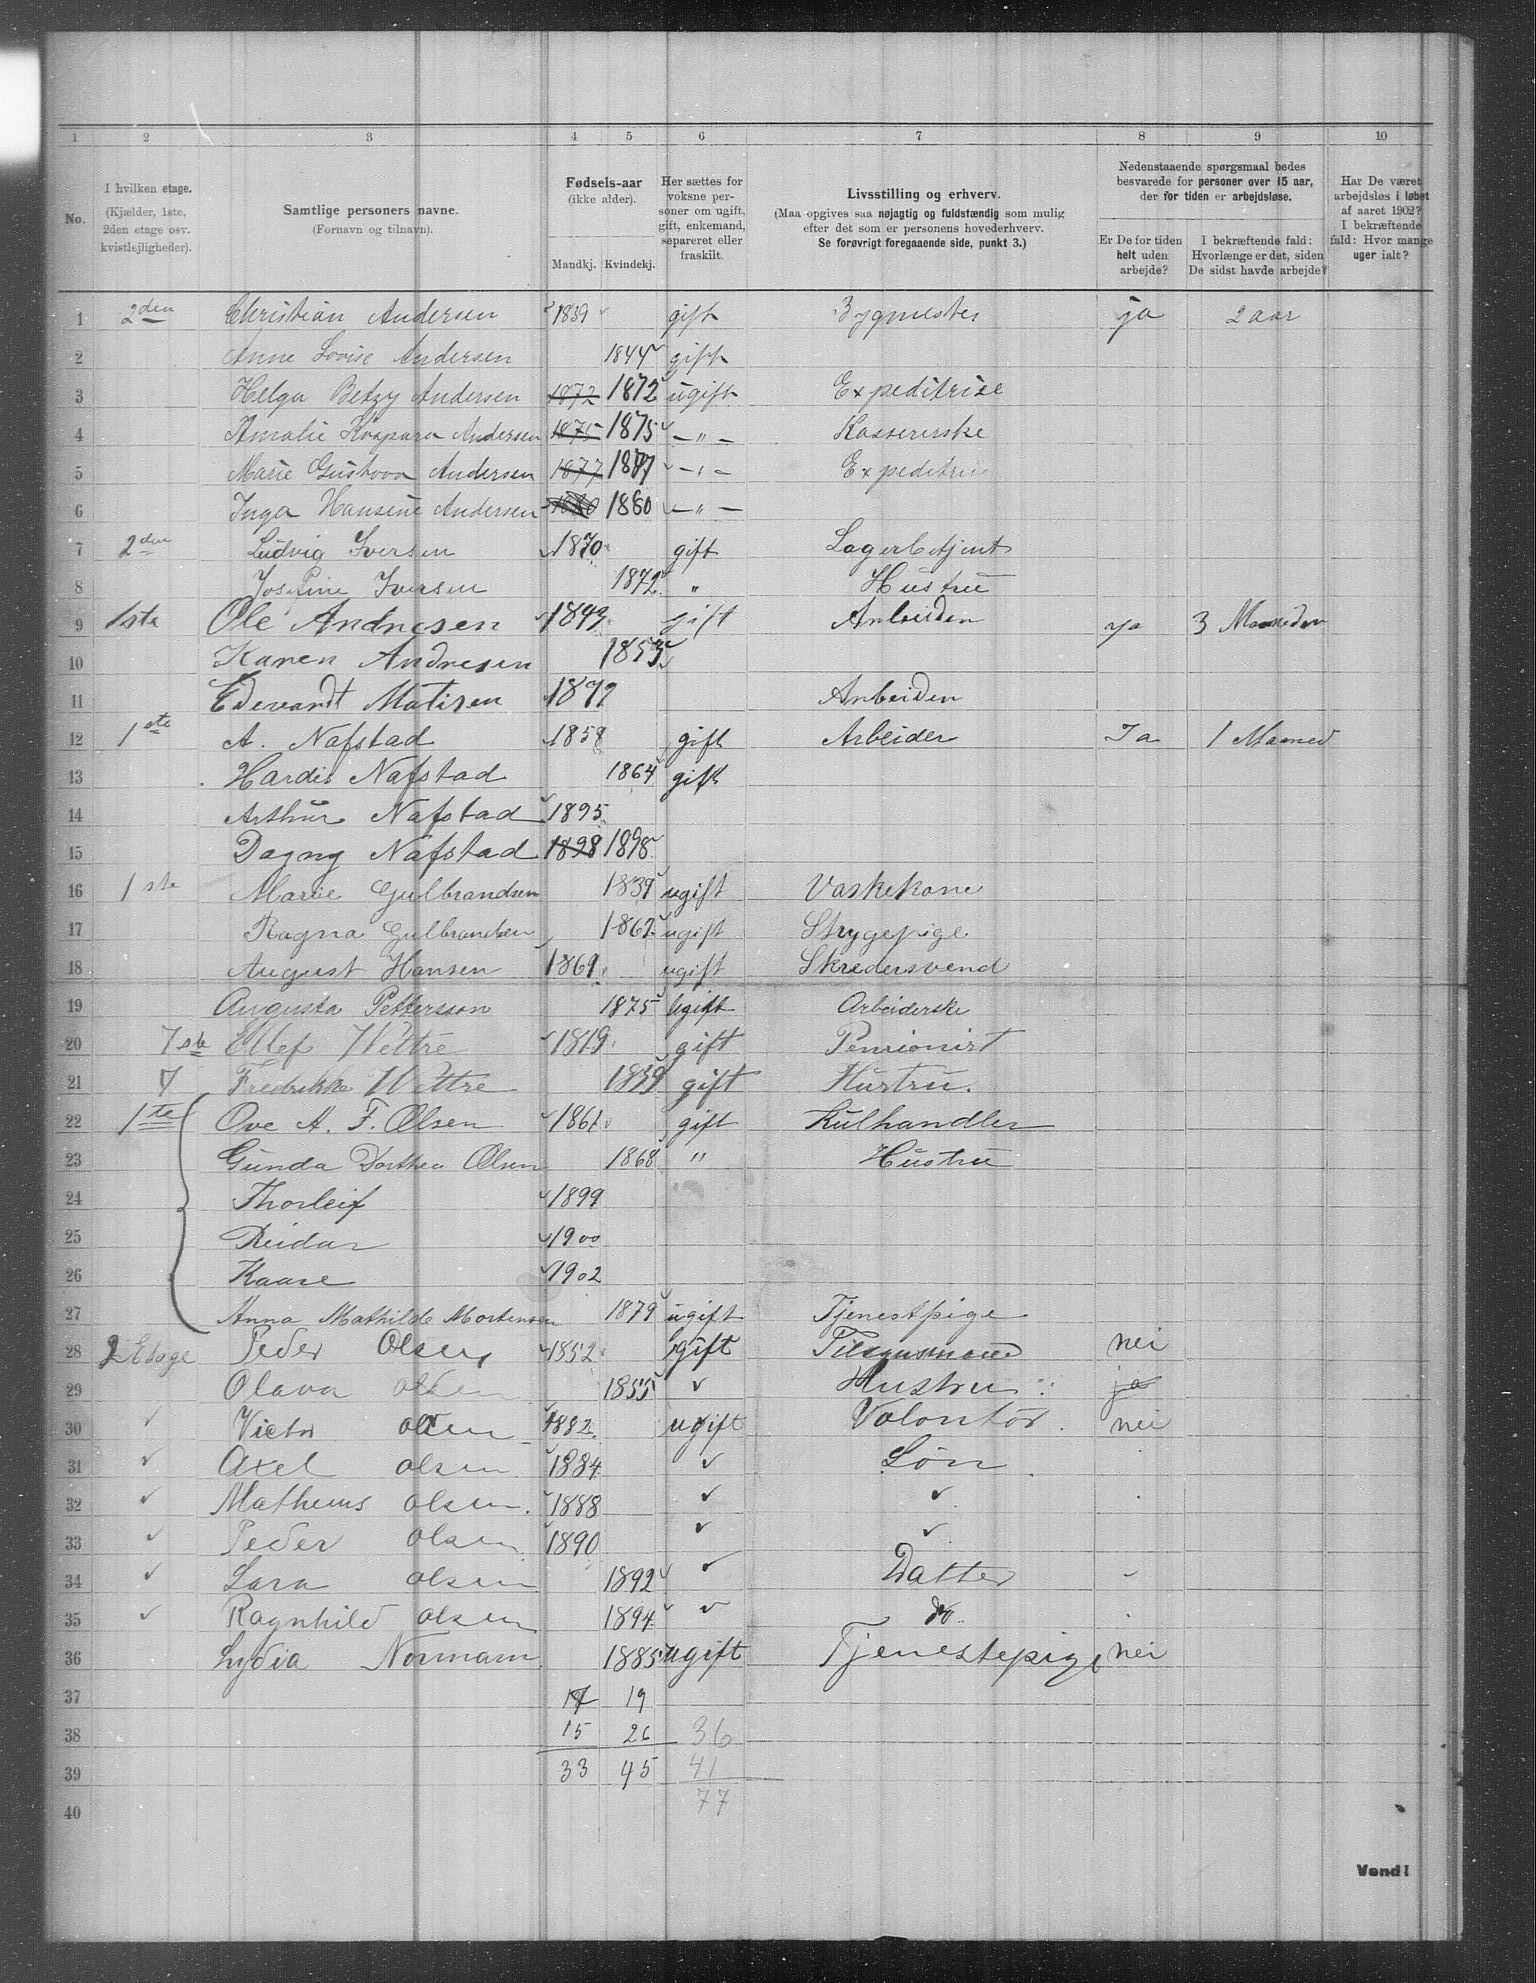 1 2 3 4 5 6 7 8 9 10
No.
I hvilken etage.
(Kjælder, 1ste,
2den etage osv.
kvistlejligheder).
Samtlige personers navne.
(Fornavn og tilnavn).
Fødsels-aar
(ikke alder).
Mandkj. Kvindekj.
Her sættes for
voksne per-
soner om ugift,
gift, enkemand,
separeret eller
fraskilt.
Livsstilling og erhverv.
(Maa opgives saa nøjagtig og fuldstændig som mulig
efter det som er personens hovederhverv.
Se forøvrigt foregaaende side, punkt 3.)
Nedenstaaende spørgsmaal bedes
besvarede for personer over 15 aar,
der for tiden er arbejdsløse.
Er De for tiden
helt uden
arbejde?
I bekræftende fald:
Hvorlænge er det, siden
De sidst havde arbejde?
Har De været
arbejdsløs i løbet
af aaret 1902?
I bekræftende
fald: Hvor mange
uger ialt?
1 2den Christian Andersen 1839 gift Bygmester ja 2 aar
2 Anne Lovise Andersen 1844 gift
3 Helga Betzy Andersen 1872 1872 ugift Expeditrise
4 Amalie Kaspara Andersen 1875 1875 — " — Kassererske
5 Marie Gustava Andersen 1877 1877 — " — Expeditrise
6 Inga Hansine Andersen 1880 1880 — " —
7 2den Ludvig Iversen 1870 gift Lagerbetjent
8 Josefine Iversen 1872 " Hustru
9 1ste Ole Andresen 1849 gift Arbeider ya 3 Maaneder
10 Karen Andresen 1853
11 Edevardt Matisen 1872 Arbeider
12 1ste A. Nafstad 1858 gift Arbeider Ja 1 Maaned
13 Hardis Nafstad 1864 gift
14 Arthur Nafstad 1895
15 Dagny Nafstad 1898 1898
16 1ste Marie Gulbrandsen 1839 ugift Vaskekone
17 Ragna Gulbrandsen 1867 ugift Strygepige
18 August Hansen 1869 ugift Skredersvend
19 Augusta Pettersson 1875 Ugift Arbeiderske
20 1ste Ellef Wettre 1819 gift Pensionist
21 Fredrikke Wettre 1839 gift Hustru.
22 1ste Ove A. F. Olsen 1861 gift Kulhandler
23 Gunda Dorthea Olsen 1868 " Hustru
24 Thorleif 1899
25 Reidar 1900
26 Kaare 1902
27 Anna Mathilde Mortensen 1879 ugift Tjenestpige
28 2 Etage Peder Olsen 1852 gift nei
29 Olava Olsen 1855 Hustru ja
30 Victor Olsen 1882 ugift Volontør nei
31 Axel Olsen 1884 Søn
32 Matheus Olsen 1888
33 Peder Olsen 1890
34 Lara Olsen 1892 Datter
35 Ragnhild Olsen 1894 do
36 Lydia Normann 1885 ugift Tjenestepige nei
37 17 19
38 15 26 36
39 33 45 41
40 77
Vend!